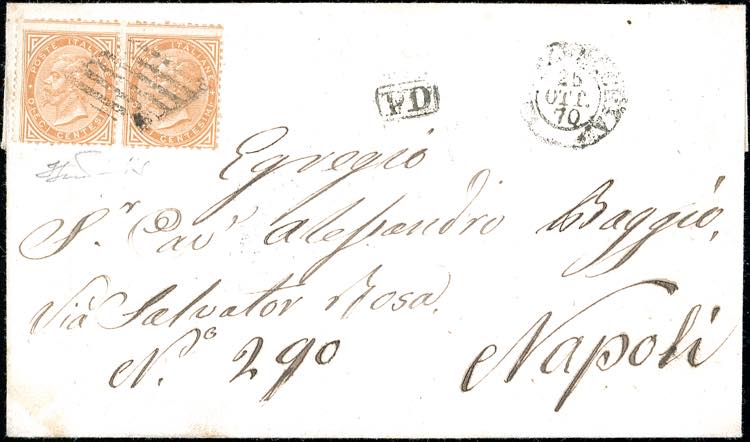 POSTE ITALIANE POSTE ITALIANE
DIECI CENTESIMI DIECI CENTESIMI
P.D
25
OTT.
70
Egregio
S.r Cav.r Alessandro Baggio,
Via Salvator Rosa.
N.o 290 Napoli